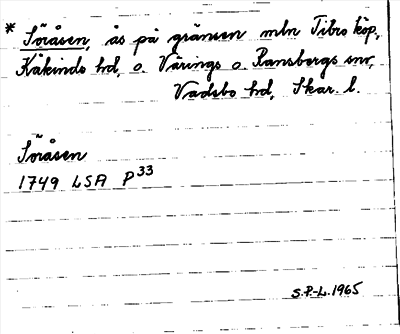 * Söråsen, ås på gränsen mln Tibro köp,
Kåkinds hd, o. Värings o. Ransbergs snr,
Vadsbo hd, Skar. l.
Söråsen
1749 LSA P33
S.P.-L. 1965